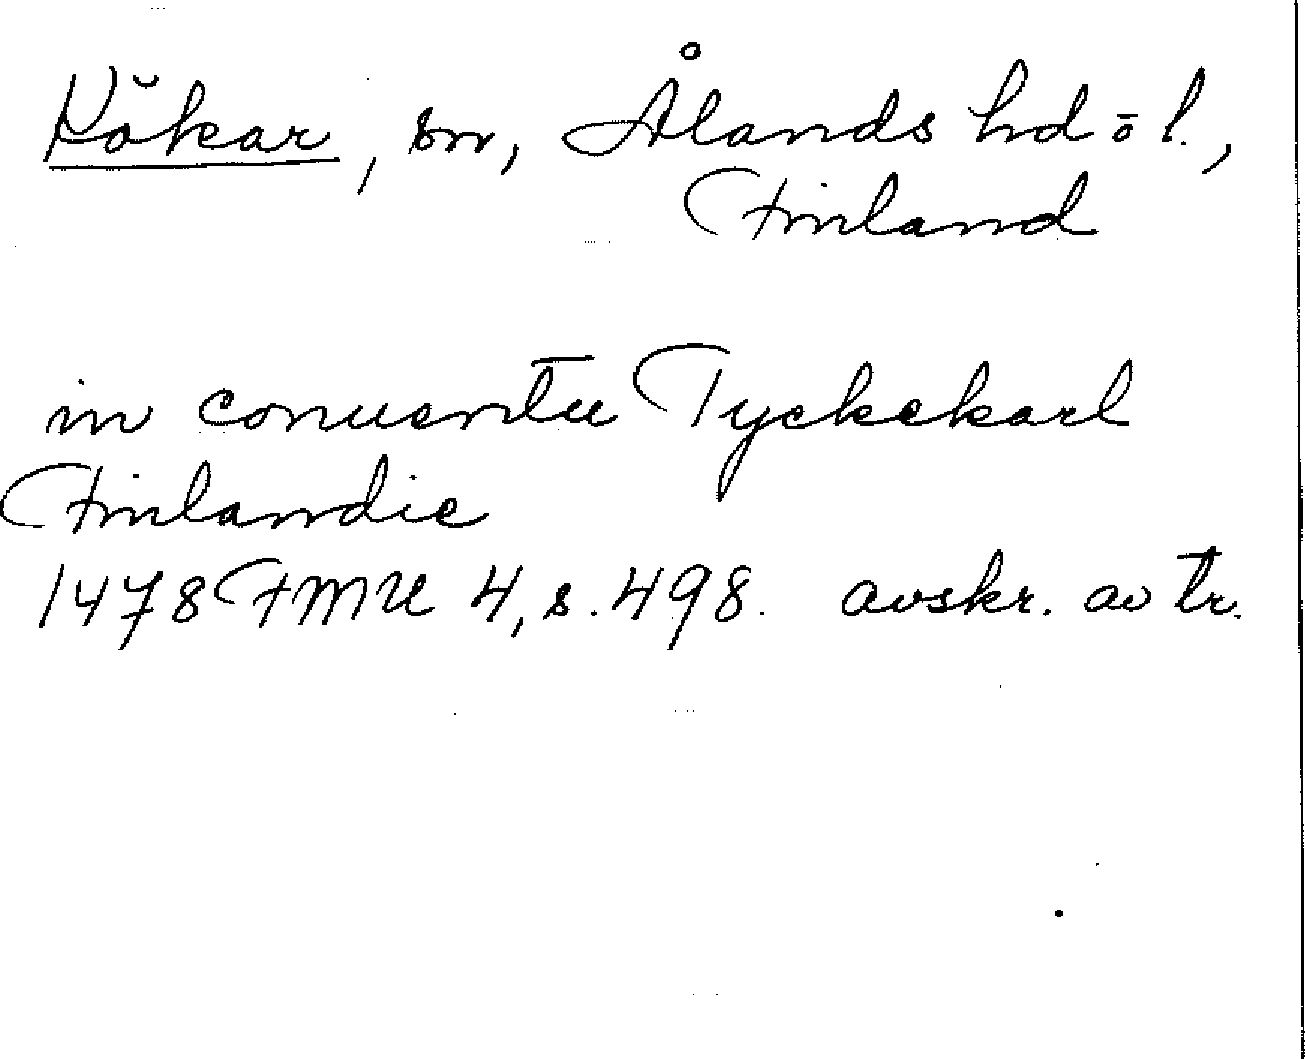 Kökar, sn, Ålands hd ö l.,
Finland
in conuentu Tyckekarl
Finlandie
1478 FMU 4, s. 498. avskr. av tr.